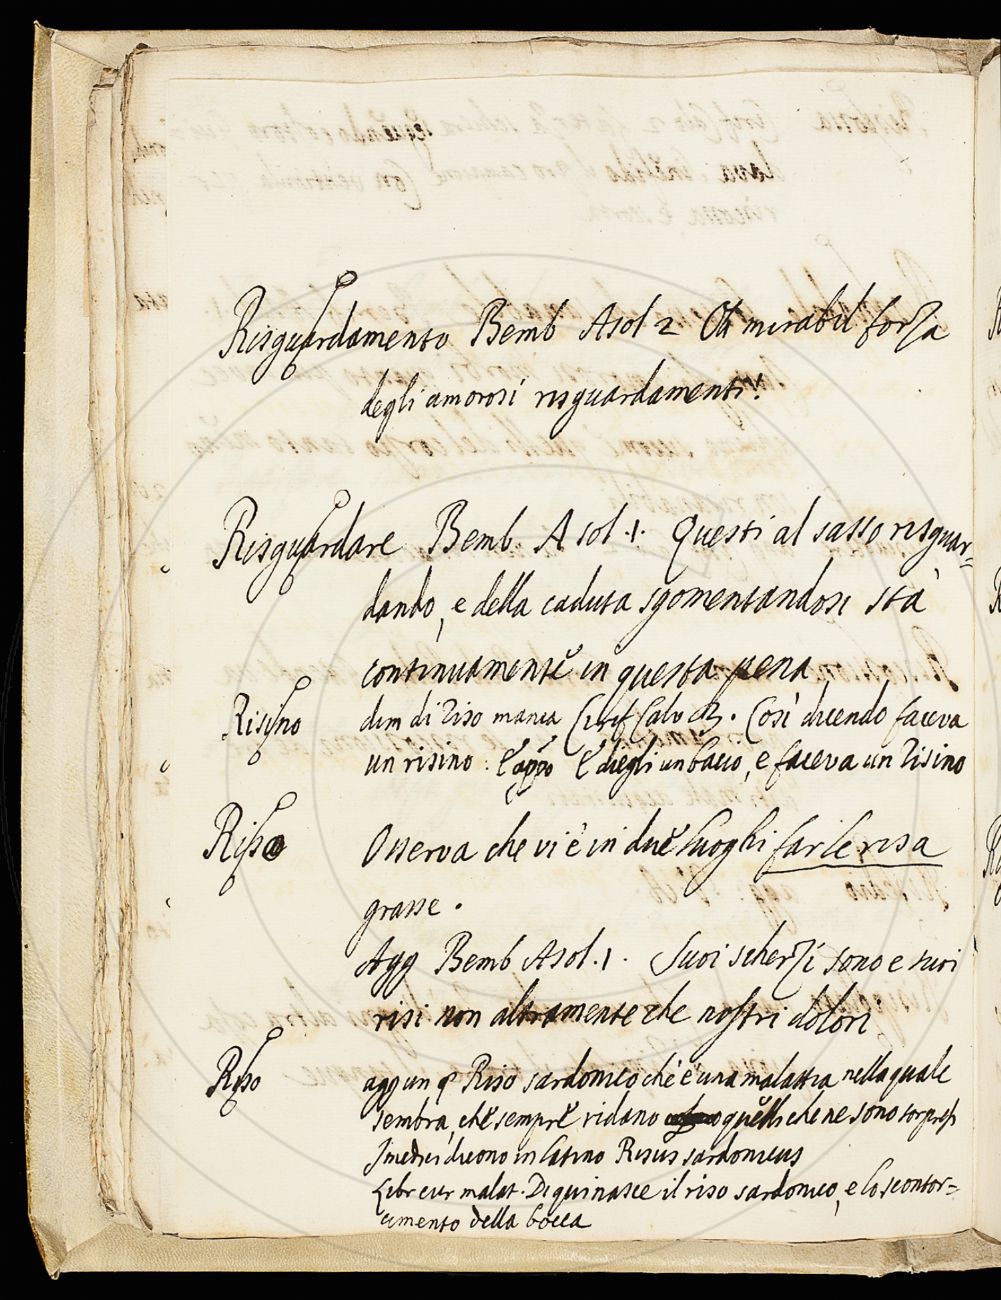 Risguardamento Bemb Asol 2 Oh mirabil forza
degli amorosi risguardamenti!
Risguardare Bemb. Asol. 1. Questi al sasso risguar=
dando, e della caduta sgomentandosi stà
continuamente in questa pena
Risino dim di riso manca Cirif Calv 2. Così dicendo faceva
un risino. E appo E diegli un bacio, e faceva un risino
Riso Osserva che vi è in due luoghi far le risa
grasse.
Agg Bemb Asol. 1. Suoi scherzi sono e suoi
risi non altramente che nostri dolori
Riso aggiun Riso sardonico ch'è una malattia nella quale
sembra, che sempre ridano quelli che ne sono sorpresi
I medici dicono in latino Risus sardonicus
Libr cur malat. Di qui nasce il riso sardonico, e lo scontor=
cimento della bocca